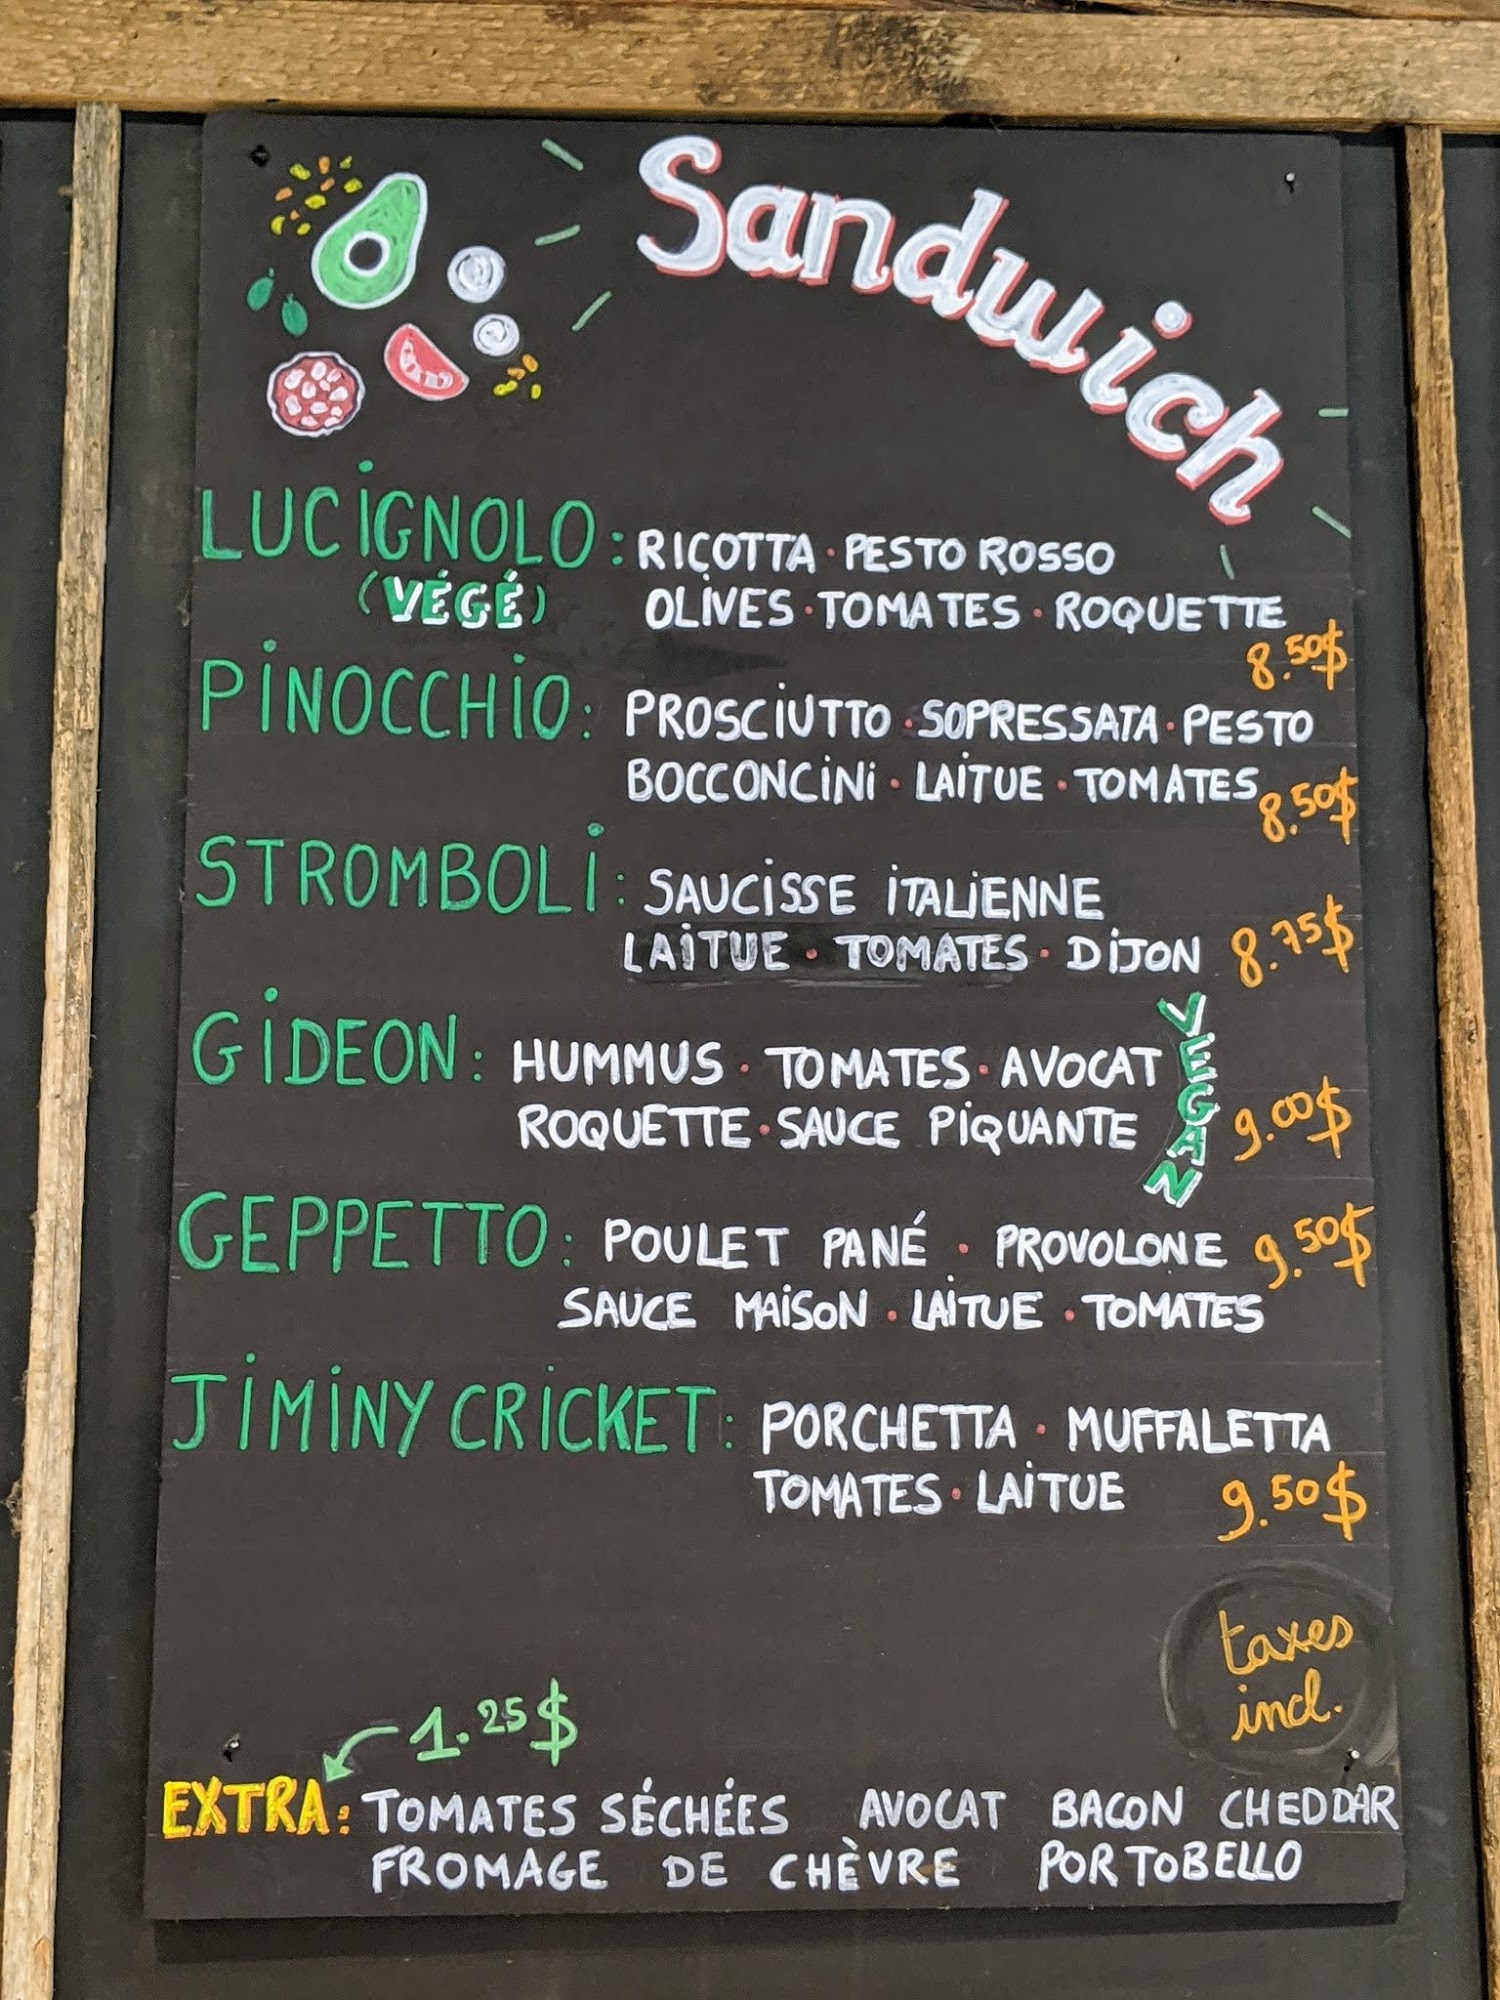 Sandwich
LUCIGNOLO: RICOTTA · PESTO ROSSO
(VÉGÉ) OLIVES · TOMATES · ROQUETTE
8.50$
PINOCCHIO: PROSCIUTTO · SOPRESSATA · PESTO
BOCCONCINI · LAITUE · TOMATES
8.50$
STROMBOLI: SAUCISSE ITALIENNE
LAITUE · TOMATES · DIJON 8.75$
GIDEON: HUMMUS · TOMATES · AVOCAT
ROQUETTE · SAUCE PIQUANTE 9.00$
VEGAN
GEPPETTO: POULET PANÉ · PROVOLONE 9.50$
SAUCE MAISON · LAITUE · TOMATES
JIMINY CRICKET: PORCHETTA · MUFFALETTA
TOMATES · LAITUE 9.50$
taxes
incl.
1.25$
EXTRA: TOMATES SÉCHÉES AVOCAT BACON CHEDDAR
FROMAGE DE CHÈVRE PORTOBELLO